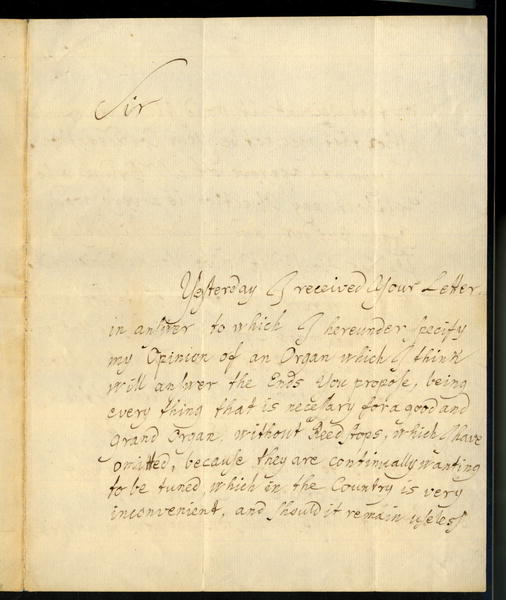 Sir
Yesterday I received Your Letter
in answer to which I hereunder specify
my Opinion of an Organ which I think
will answer the Ends You propose, being
every thing that is necessary for a good and
grand Organ. without Reed stops, which I have
omitted, because they are continually wanting
to be tuned, which in the Country is very
inconvenient, and should it remain useless